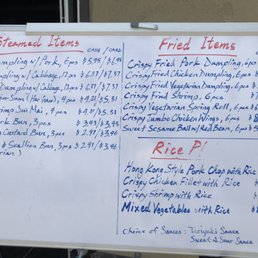 Steamed Items
CASH / CARD
Pork, 6pcs $5.75 / $5.98
w/ Cabbage, 12pcs $6.87 / $7.37
w/ Cabbage, 12pcs $6.87 / $7.37
(Har Gow), 4pcs
Shrimp Sui Mai, 4pcs
Pork Bun, 3pcs $3.45 / $3.96
Custard Bun, 3pcs $2.91 / $3.46
& Scallion Bun, 3pcs $2.91 / $3.46
Fried Items
Crispy Fried Pork Dumpling, 6pcs
Crispy Fried Chicken Dumpling, 6pcs
Crispy Fried Vegetarian Dumpling, 6pcs $
Crispy Fried Shrimp, 6pcs $
Crispy Vegetarian Spring Roll, 6pcs $
Crispy Jumbo Chicken Wings, 6pcs $
Sweet Sesame Ball w/ Red Bean, 5pcs $
Rice Pl
Hong Kong Style Pork Chop with Rice
Crispy Chicken Fillet with Rice $
Crispy Shrimp with Rice $
Mixed Vegetables with Rice $
Choice of Sauces: Teriyaki Sauce
Sweet & Sour Sauce